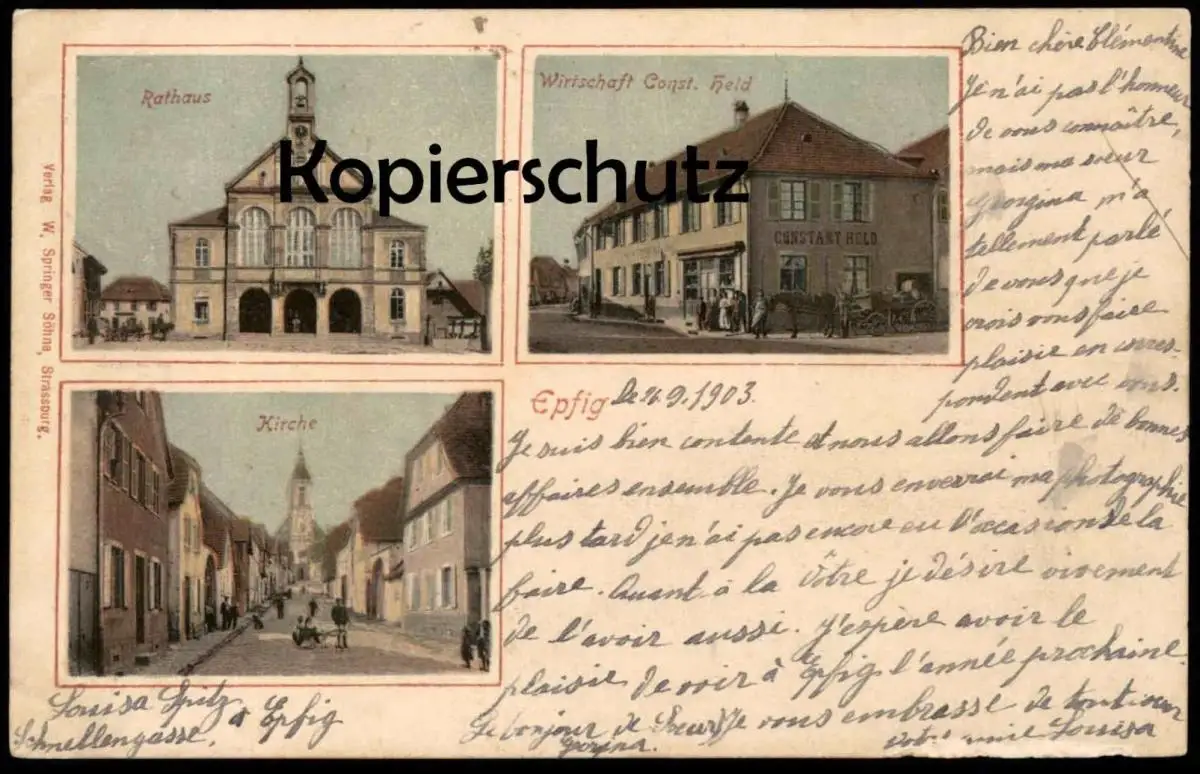 Rathaus
Wirtschaft Const. Held
Kopierschutz
CONSTANT HELD
Verlag W. Springer Söhne, Strassburg.
Kirche
Epfig
Bien chère Clémentine
Je n'ai pas l'honneur
de vous connaître,
mais ma sœur
Georgina m'a
tellement parlé
de vous que je
crois vous faire
plaisir en corres-
pondent avec vous.
Le 26.9.1903.
Je suis bien contente et nous allons faire de bonnes
affaires ensemble. Je vous enverrai ma photographie
plus tard je n'ai pas encore eu l'occasion de la
faire. Quant à la Vôtre je désire vivement
de l'avoir aussi. J'espère avoir le
plaisir de voir à Epfig l'année prochaine.
Le bonjour de Georgina. Je vous embrasse de tout cœur
Votre amie Louisa
Louisa Spitz
Schnellengasse, à Epfig